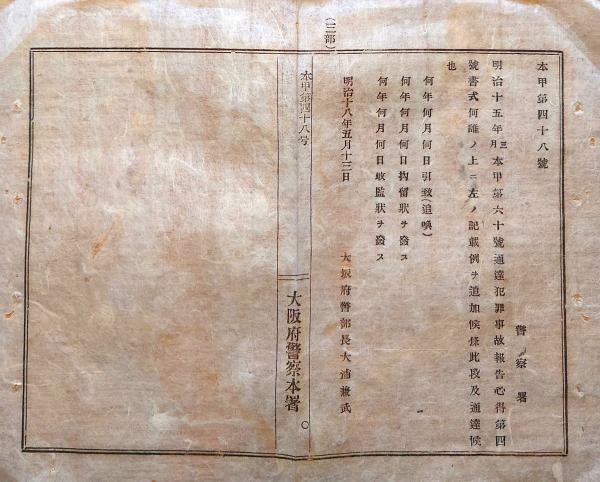 本甲第四十八號
警察署
明治十五年三月本甲第六十號通達犯罪事故報告心得第四
號書式何誰ノ上ニ左ノ記載例ヲ追加候條此段及通達候
也
何年何月何日引致(追喚)
何年何月何日拘留狀ヲ發ス
何年何月何日收監狀ヲ發ス
明治十八年五月十三日
大坂府警部長大浦兼武
(二部)
本甲第四十八号
大阪府警察本署